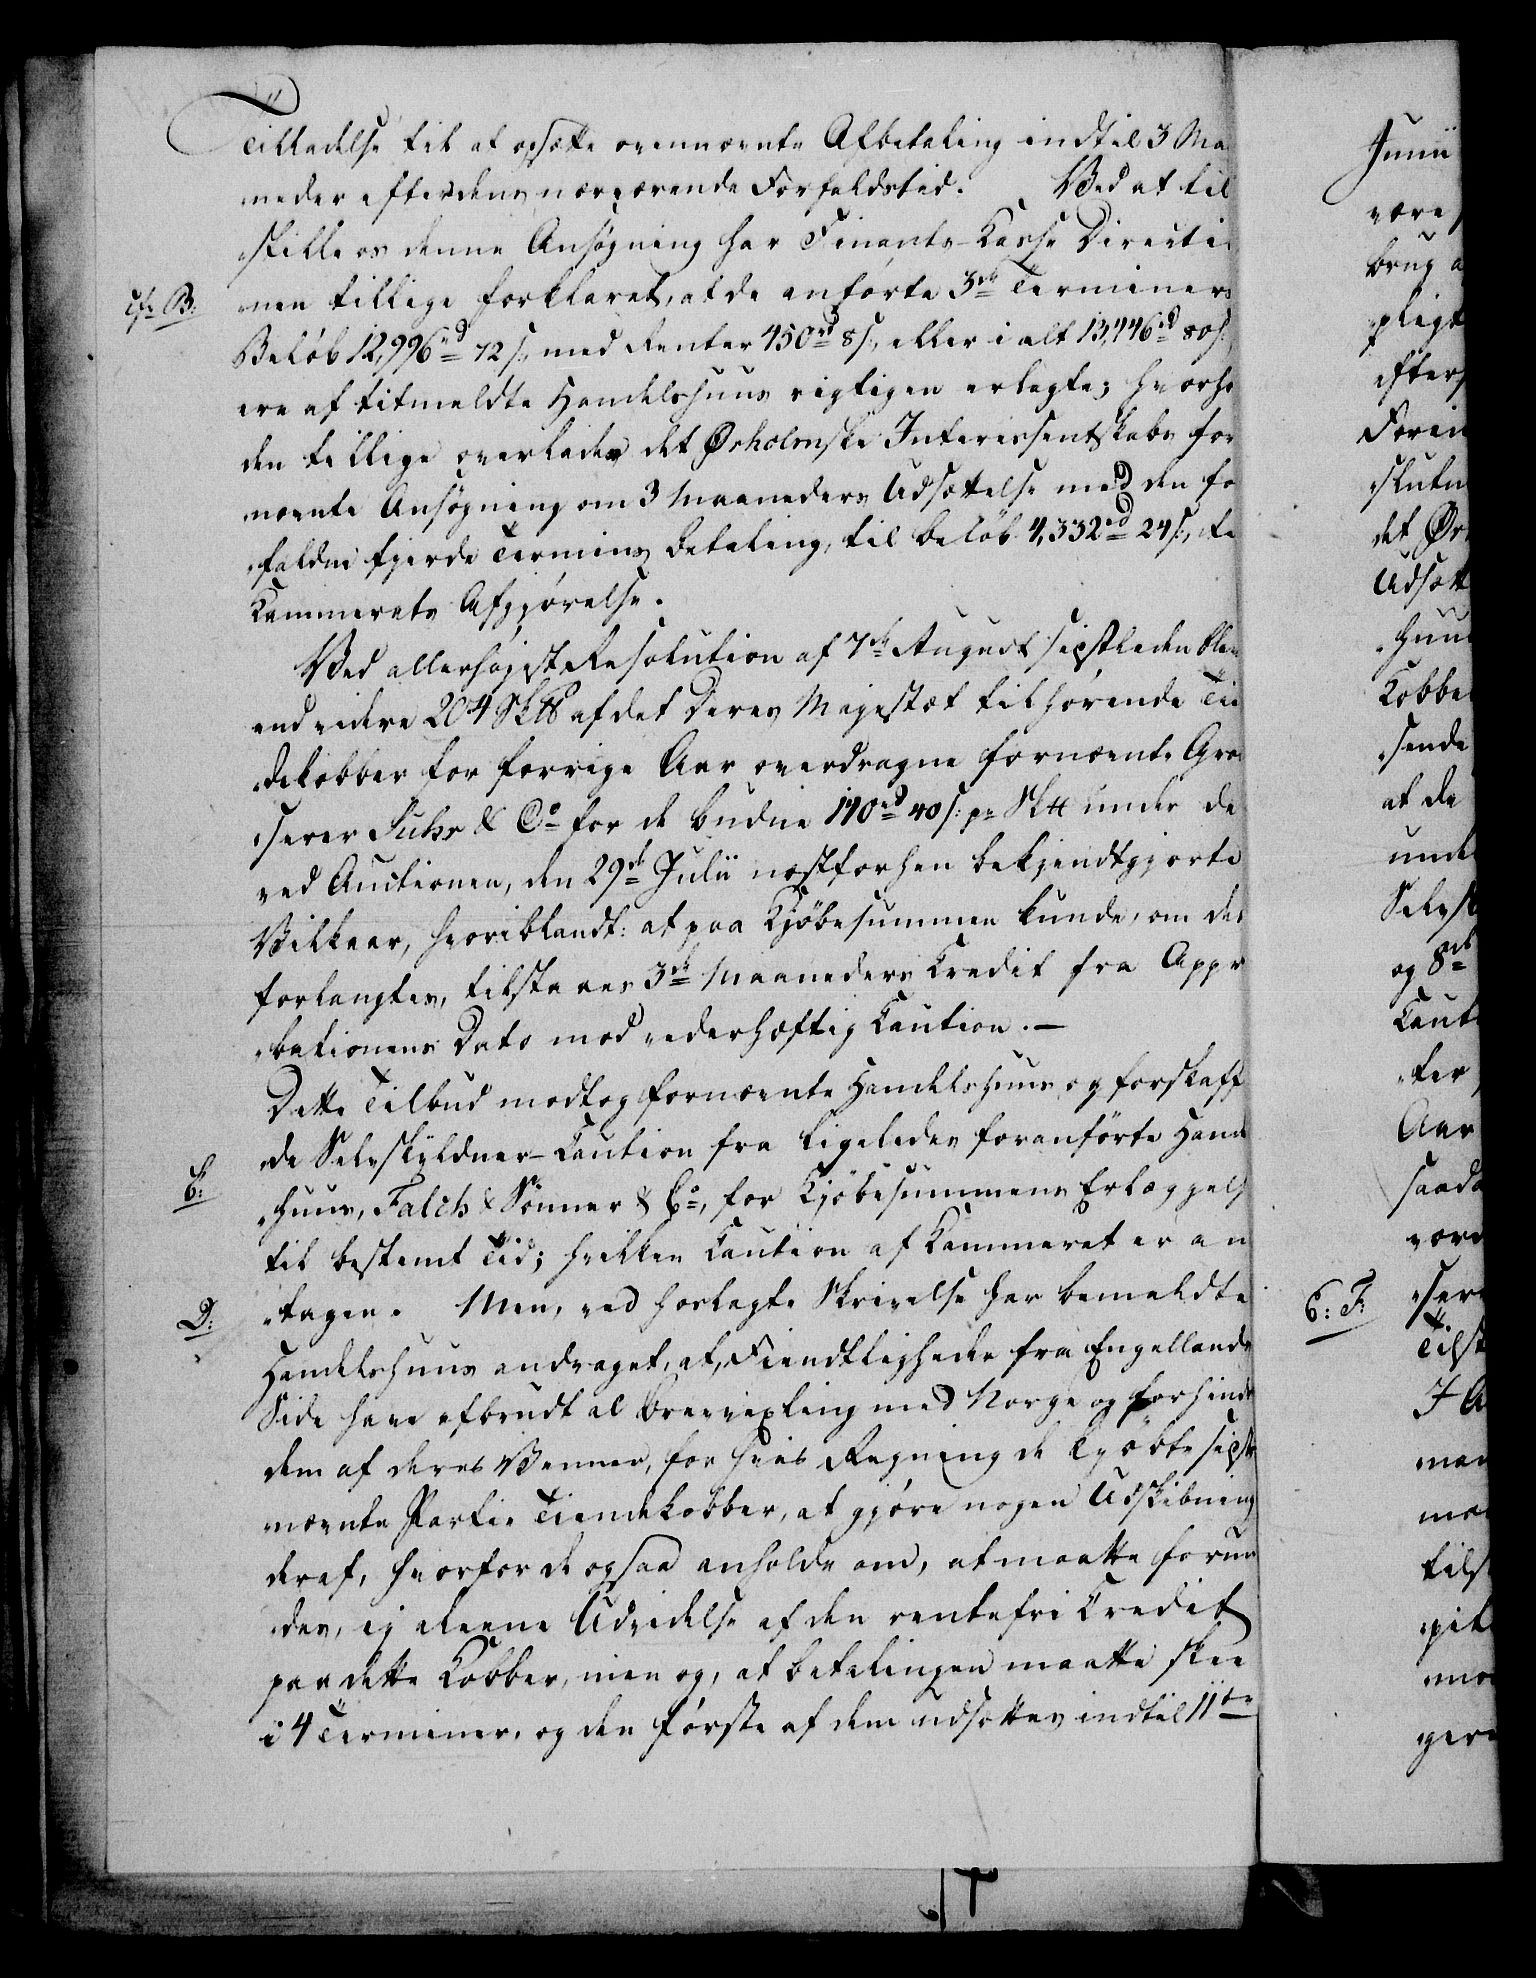 Tilladelse til at opsætte ovennævnte Afbetaling indtil 3 Ma
neder efter dens nærværende Forfaldstid. Ved at til
stille os denne Ansøgning har Finants-Casse Directi
cfr B: nen tillige forklaret, at de anførte 3de Terminers
Beløb 12,996rd 72 s., med Renter 450rd 8 s., eller i alt 13,446rd 80 s.,
ere af titmeldte Handelshuus rigtigen erlagte; hvorho
den tillige overlades det Ørholmske Interessentskabs for
nævnte Ansøgning om 3 Maaneders Udsættelse med den fo
faldne fjerde Termins Betaling, til beløb 4,332rd 24 s., til
Kammerets Afgjørelse.
Ved allerhøjeste Resolution af 7de August sidstleden blev
end videre 204 Sk℔ af det Deres Majestæt tilhørende Tii
dekobber for forrige Aar overdragne fornævnte Gros
serer Suhr & Co for de budne 190rd 40 s. pr Sk℔ under de
ved Auctionen, den 29de Julii næstforhen bekjendtgjorte
Vilkaar, hvoriblandt: at paa Kjøbesummen kunde, om det
forlangtes, tilstaaes 3de Maaneders Credit fra Appr
bationens Dato mod vederhæftig Caution. —
Dette Tilbud modtog fornævnte Handelshuus og forskaff
de Selvskyldner-Caution fra ligeledes foranførte Hand
C: huus, Falch & Sønner & Co, for Kjøbesummens Erlæggelse
til bestemt Tid; hvilken Caution af Kammeret er an
D: tagen. Men, ved forlagte Skrivelse har bemeldte
Handelshuus andraget, at, Fiendtligheder fra Engellands
Side have afbrudt al Brevvexling med Norge og forhindr
dem af deres Venner, for hvis Regning de kjøbte sidst
nævnte Partie Tiendekobber, at gjøre nogen Udskibning
deraf, hvorfor de ogsaa anholde om, at maatte forun
des, ej alene Udvidelse af den rentefri Credit
paa dette Kobber, men og, at betalingen maatte skee
i 4 Terminer, og den første af dem udsættes indtil 11te
Junii
være
brug a
pligt
efters
Foren
slutn
det Ør
Udsætt
huu
Kobbe
sende
at de
unde
Selvsk
og 8de
Caut
ter
Aar
saada
være
E: F: sere
Tilst
I A
man
mo
tils
pit
mo
gere